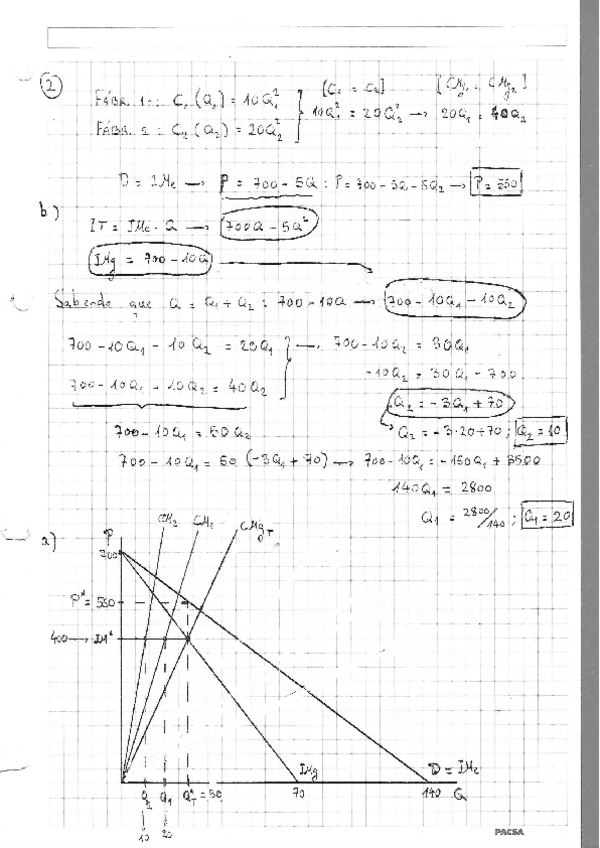 2
[C₁ = C₂] [CMg₁ = CMg₂]
FÁBR. 1: C₁(Q₁) = 10Q₁²
10Q₁² = 20Q₂² → 20Q₁ = 40Q₂
FÁBR. 2: C₂(Q₂) = 20Q₂²
D = IMe → P = 700 - 5Q : P = 700 - 5Q - 5Q₂ → P = 550
b)
IT = IMe · Q → 700Q - 5Q²
IMg = 700 - 10Q
Sabendo que Q = Q₁ + Q₂ : 700 - 10Q → 700 - 10Q₁ - 10Q₂
700 - 10Q₁ - 10Q₂ = 20Q₁ → 700 - 10Q₂ = 30Q₁
-10Q₂ = 30Q₁ - 700
700 - 10Q₁ - 10Q₂ = 40Q₂
Q₂ = -3Q₁ + 70
700 - 10Q₁ = 50Q₂ Q₂ = -3·20+70 ; Q₂ = 10
700 - 10Q₁ = 50 (-3Q₁ + 70) → 700 - 10Q₁ = -150Q₁ + 3500
140Q₁ = 2800
Q₁ = 2800/140 ; Q₁ = 20
a) P CM₂ CM₁ CMgT
700
P* = 550
400 → IM*
IMg D = IMe
Q₂ Q₁ Q*T = 30 70 140 Q
10 20
PACSA